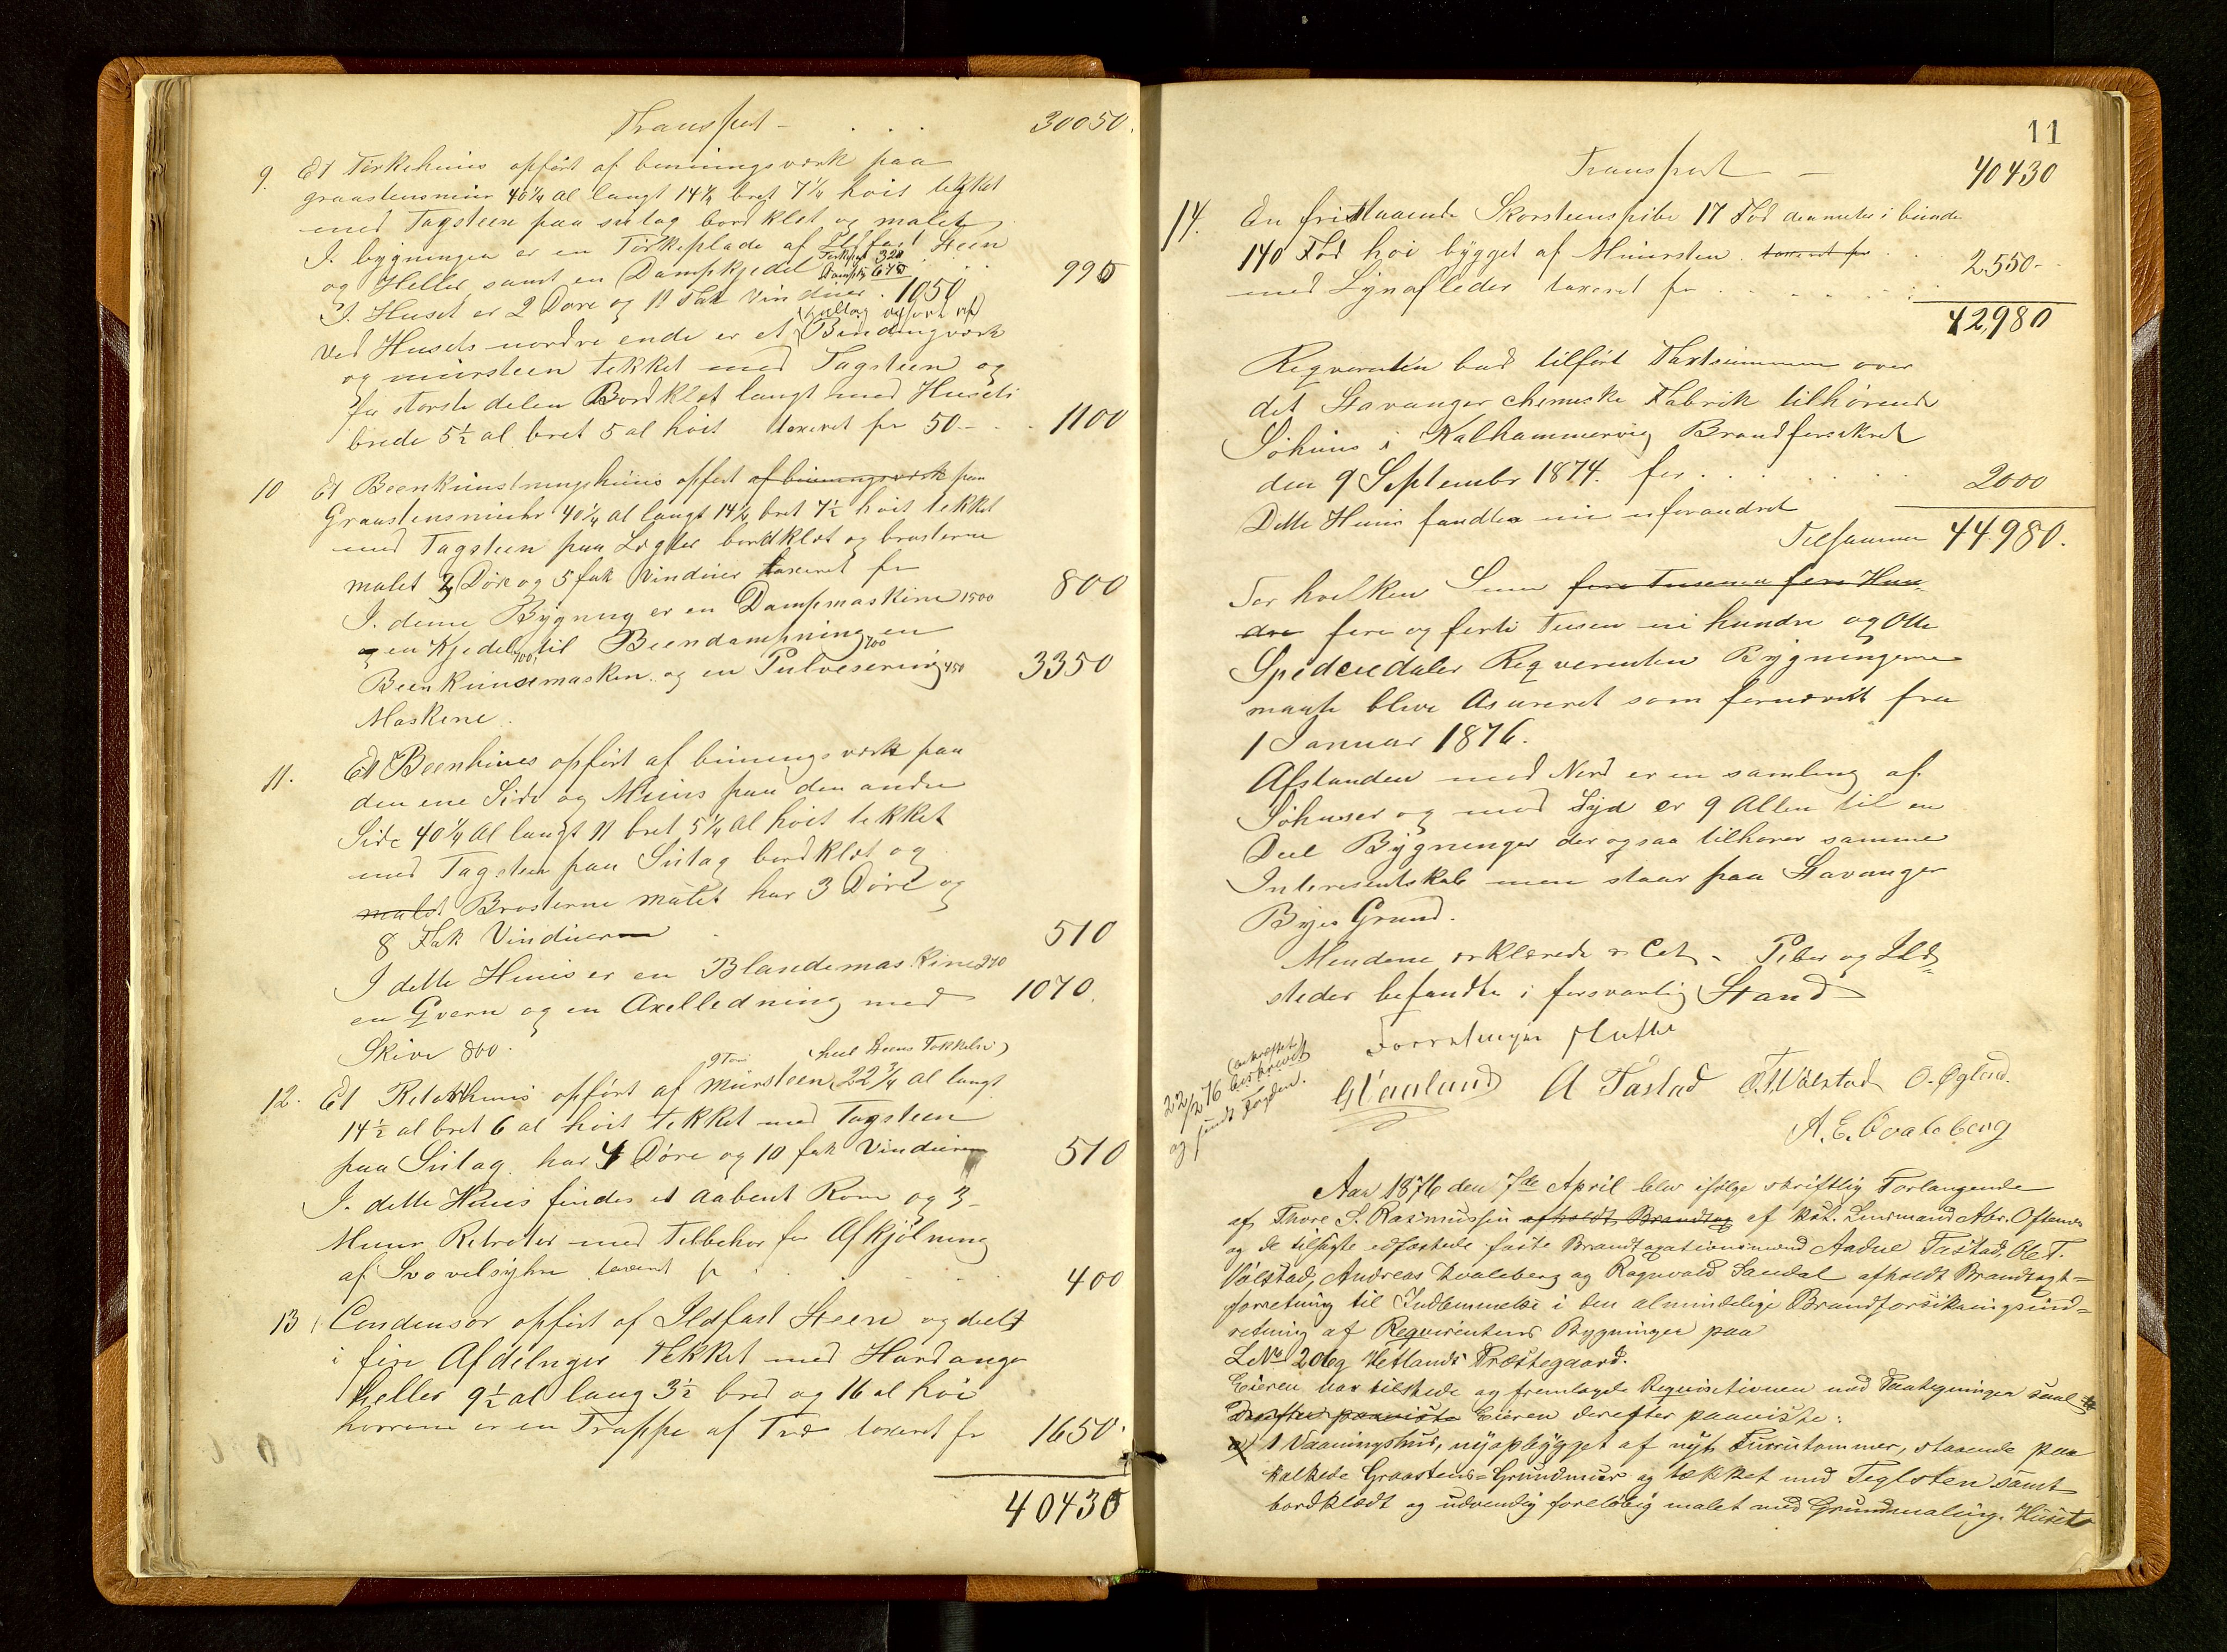 Transport - . . . 30050.
9. Et Tørkehuus opført af binningsværk paa
graastensmuur 40¼ al langt 14¼ bret 7¼ høit tekket
med Tagsteen paa sutag bordklæt og malet
I bygningen er en Tørkeplade af Ildfast Steen
Tørkepl 320
og Heller samt en Dampkjedel Dampkj 675 . . 995
I. Huset er 2 Døre og 11 Fak Vinduer . 1050
opført af
Ved Husets nordre ende er et Bindingværk
og muursteen tekket med Tagsteen og
for største delen Bordklæt langt med Husets
brede 5½ al bret 5 al høit taxeret for 50 - . . 1100
10 Et Beenknusningshuus opført af binningsværk paa
Graastensmuur 40¼ al langt 14¼ bret 7½ høit tekket
med Tagsteen paa Lægter bordklæt og brøsterne
malet 3 Døre og 5 fak Vinduer taxeret for 800
I. denne Bygning er en Dampmaskine 1500
og en Kjedel 700, til Beendampning en
Beenknusemaskin 700 og en Pulvesering 450 3350
Maskine.
11. Et Beenhuus opført af binningsværk paa
den ene Side og Muus paa den andre
Side 40¼ Al langt 11 bret 5¼ Al høit tekket
med Tagsteen paa Sutag bordklæt og
malet Brøsterne malet har 3 Døre og
8 Fak Vinduer 510
I dette Huus er en Blandemaskine 270
en Qvern og en Axelledning med 1070.
Skive 800.
9 Tom (heel Steens Tykkelse)
12. Et Retorthuus opført af muursteen 22¾ al langt
14½ al bret 6 al høit tekket med Tagsteen
paa Sutag. har 4 Døre og 10 fak Vinduer 510
I. dette Huus findes et aabent Rom og 3
Muur Retorter med Tilbehør for Afkjølning
af Svovelsyhre taxeret for . . . 400
13 Condensor opført af Ildfast Steen og deelt
i fire Afdelinger tekket med Hardanger
heller 9½ al lang 3½ bred og 16 al høi
hvorom er en Trappe af Træ taxeret for 1650.
40430
11
Transport - 40430
14. En fristaaende Skorsteenspibe 17 Fod diameter i bunde
140 Fod høi bygget af Muursten. taxeret for . .
med Lynafleder taxeret for . . . . . . 2550-
42,980
Reqverenten bad tilført Taxtsummen over
det Stavanger chemiske Fabrik tilhørende
Søhuus i Kalhammervig Brandforsikret
den 9 September 1874. for . . . . . 2000
Dette Huus fandtes nu uforandret
Tilsammen 44980.
For hvilken Sum fire Tusinen fem Hun-
dre fire og førti Tusen ni hundre og Otte
Spidesedaler Reqverenten Bygningerne
maate blive Asureret som fornævnt fra
1 Januar 1876.
Afstanden mod Nord er en samling af
Søhusser og mod Syd er 9 Allen til en
Deel Bygninger der ogsaa tilhører samme
Interesentskab men staar paa Stavanger
Byes Grund.
Mendene erklærede &c Cet. Piber og Ild-
steder befandtes i forsvarlig Stand
Forretningen sluttet
22/2 76 bekræftet beskrevet
og sendt Fogden.
G Vaaland A Tastad O.T. Vølstad O. Øglænd.
A. E. Qvaleberg
Aar 1876 den 7de April blev ifølge skriftlig Forlangende
af Thore S. Rasmussen afholdt Brandtax af kst. Lensmand Abr. Oftenes
og de tilsagte edfæstede faste Brandtaxationsmænd Aadne Tastad, Ole T.
Vølstad, Andreas Qvaleberg og Ragnvald Sandal afholdt Brandtaxt-
forretning til Indlemmelse i den almindelige Brandforsikringsind-
retning af Reqvirentens Bygninger paa
L.No 20 og Hetlands Præstegaard.
Eieren var tilstede og fremlagde Reqvisitionen med Paategninger saml
Derefter paaviste Eieren derefter paaviste:
a) 1 Vaaningshus, nyopbygget af nyt Furrutømmer, staaende paa
kalkede Graastens-Grundmuur og tækket med Teglsten samt
bordklædt og udvendig foreløbig malet med Grundmaling. Husets